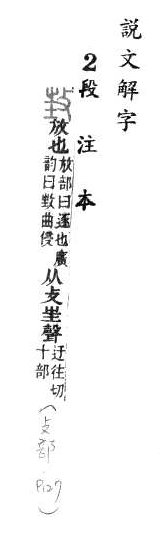 說文解字
2段注本
放也放部曰逐也廣
韵曰曲侵
从攴㞷聲迂往切
十部
(攴部 P127)